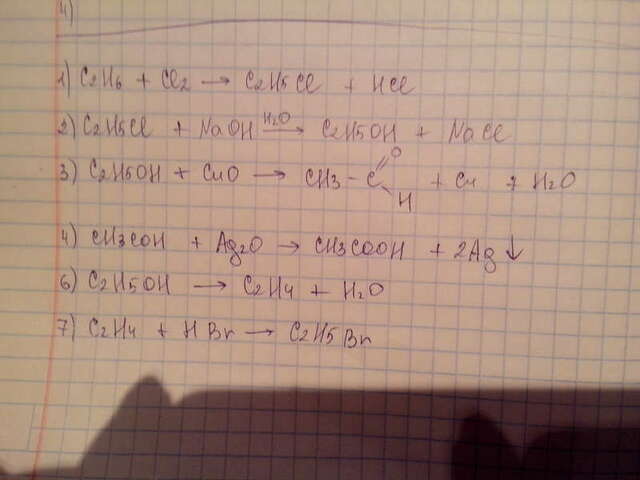 4)
1) C2H6 + Cl2 → C2H5Cl + HCl
2) C2H5Cl + NaOH H2O → C2H5OH + NaCl
3) C2H5OH + CuO → CH3 - C O H + Cu + H2O
4) CH3COH + Ag2O → CH3COOH + 2Ag ↓
6) C2H5OH → C2H4 + H2O
7) C2H4 + HBr → C2H5Br